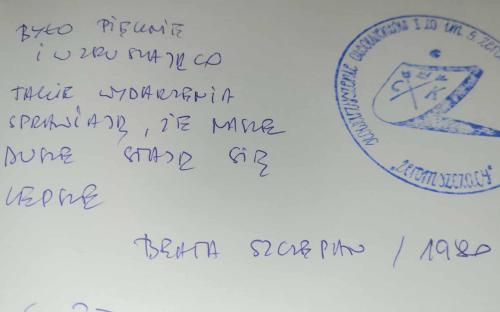 BYŁO PIĘKNIE
I WZRUSZAJĄCO
TAKIE WYDARZENIA
SPRAWIAJĄ, ŻE NASZE
DUSZE STAJĄ SIĘ
LEPSZE
BEATA SZCZEPAN / 1980
STOWARZYSZENIE ABSOLWENTÓW I LO IM. S. ŻERO
C K
"ŻEROMSZCZACY"